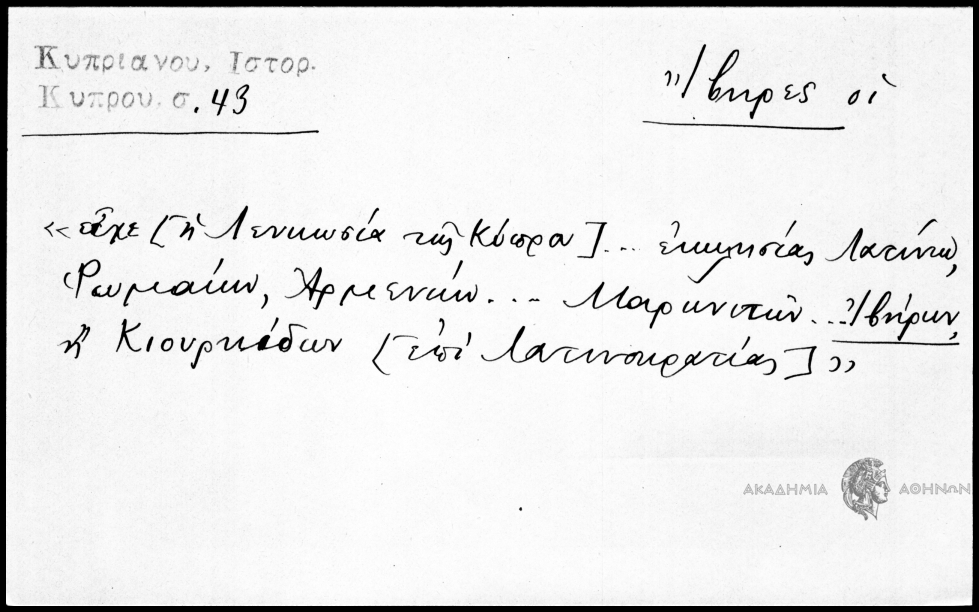 Κυπριανου, Ιστορ.
Κυπρου, σ. 43
Ἴβηρες οἱ
«εἶχε [ἡ Λευκωσία τῆς Κύπρου]... ἐκκλησίας Λατίνων,
Ρωμαίων, Ἀρμενίων... Μαρωνιτῶν... Ἰβήρων,
ἢ Κιουρκίδων [ἐπὶ Λατινοκρατίας]»
ΑΚΑΔΗΜΙΑ ΑΘΗΝΩΝ